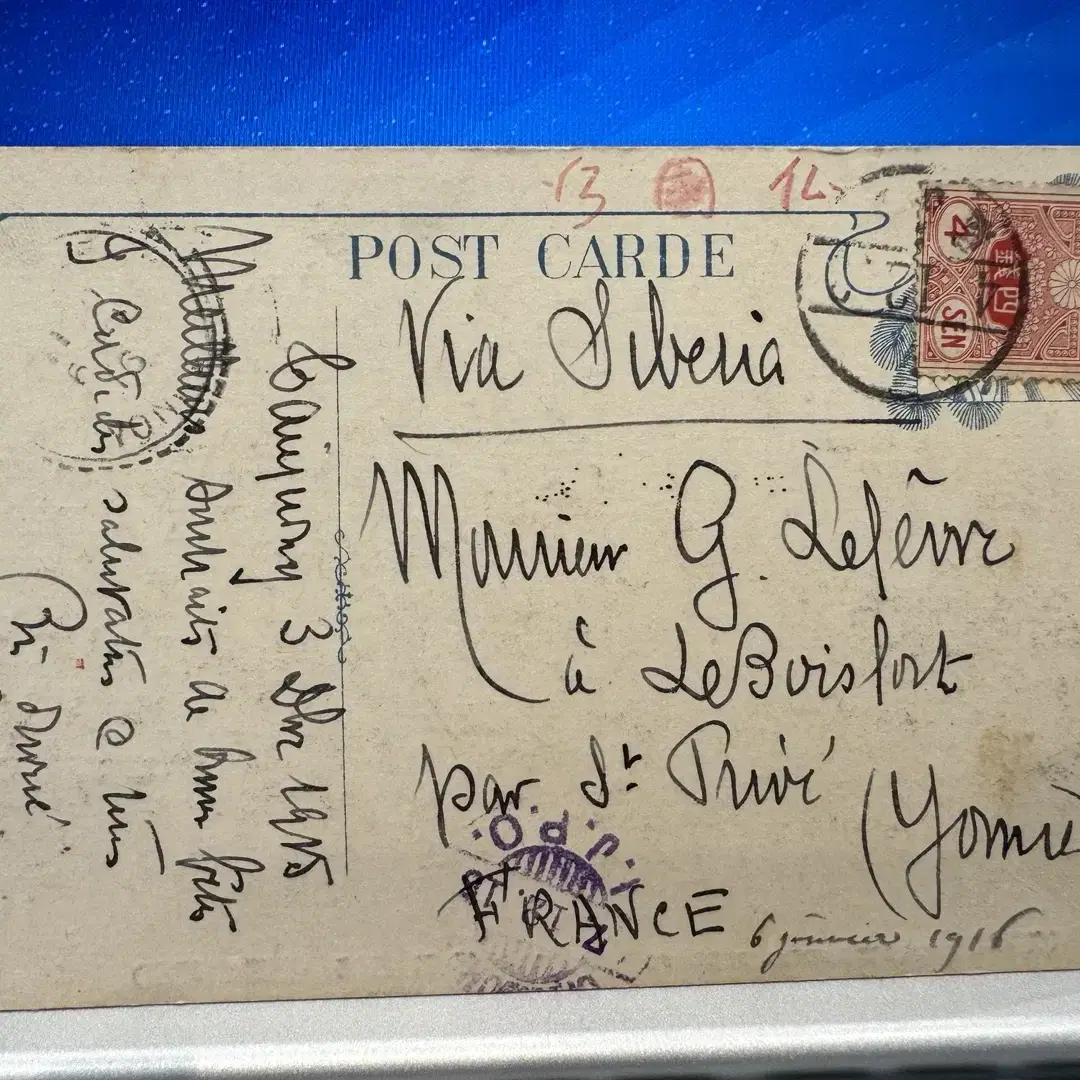 13 14
POST CARDE
4 SEN
Via Siberia
Monsieur G. Lefèvre
à LeBoisfort
par St Privé
(Yonne
FRANCE
I.J.P.O.
6 janvier 1916
3 Dbre 1915
Souhaits de bonne fête
& Cordiales salutations à tous